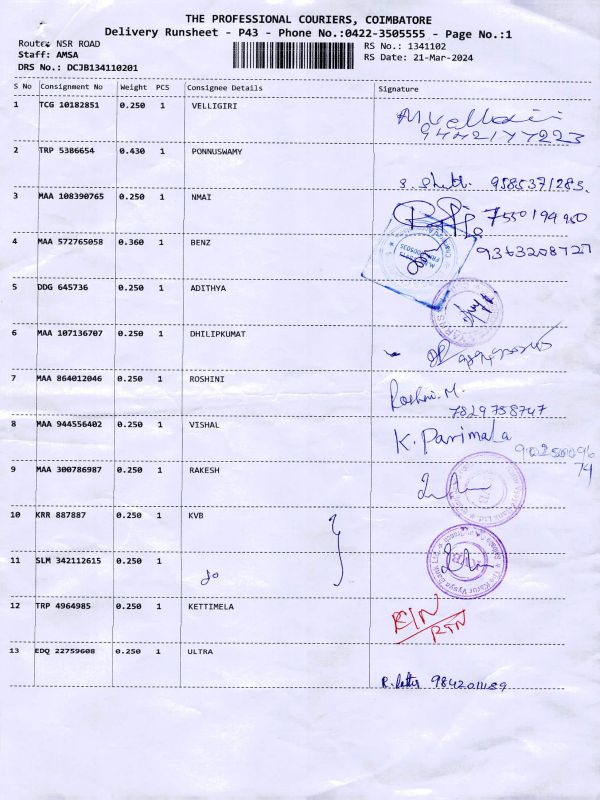 THE PROFESSIONAL COURIERS, COIMBATORE
Delivery Runsheet - P43 - Phone No.:0422-3505555 - Page No.:1
Route: NSR ROAD
Staff: AMSA
DRS No.: DCJB134110201
RS No.: 1341102
RS Date: 21-Mar-2024
S No Consignment No Weight PCS Consignee Details Signature
1 TCG 10182851 0.250 1 VELLIGIRI
9442177223
2 TRP 5386654 0.430 1 PONNUSWAMY
9585371285.
3 MAA 108390765 0.250 1 NMAI
7550199950
4 MAA 572765058 0.360 1 BENZ
9363208727
5 DDG 645736 0.250 1 ADITHYA
6 MAA 107136707 0.250 1 DHILIPKUMAT
7 MAA 864012046 0.250 1 ROSHINI
Roshni.M.
7829758747
8 MAA 944556402 0.250 1 VISHAL
K. Parimala
9 MAA 300786987 0.250 1 RAKESH
10 KRR 887887 0.250 1 KVB
11 SLM 342112615 0.250 1
do
12 TRP 4964985 0.250 1 KETTIMELA
RTN
13 EDQ 22759608 0.250 1 ULTRA